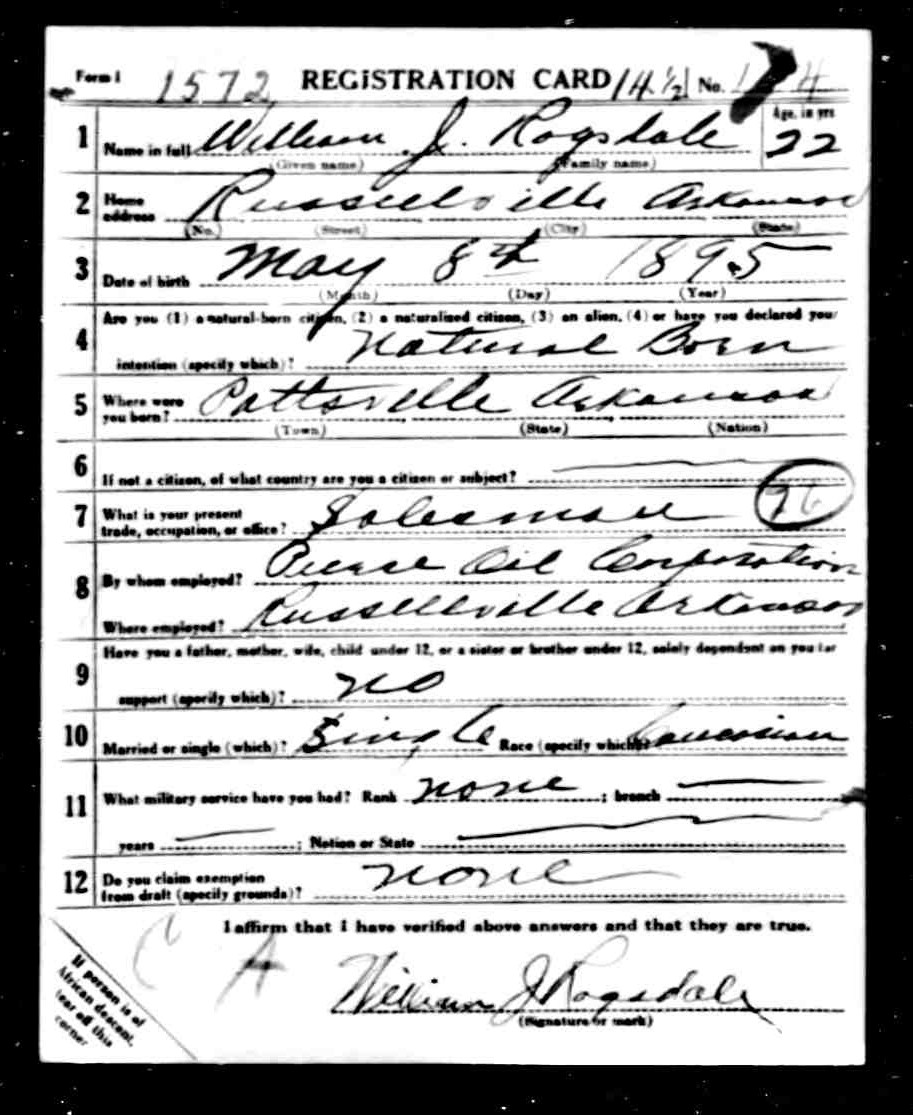 Form 1 1572 REGISTRATION CARD No.
1 Name in full William J. Ragsdale Age, in yrs 22
(Given name) (Family name)
2 Home address Russellville Arkansas
(No.) (Street) (City) (State)
3 Date of birth May 8th 1895
(Month) (Day) (Year)
Are you (1) a natural-born citizen, (2) a naturalized citizen, (3) an alien, (4) or have you declared your
4 intention (specify which)? Natural Born
5 Where were you born? Pottsville Arkansas
(Town) (State) (Nation)
6 If not a citizen, of what country are you a citizen or subject?
7 What is your present trade, occupation, or office? Salesman
8 By whom employed? Pierce Oil Corporation
Where employed? Russellville Arkansas
9 Have you a father, mother, wife, child under 12, or a sister or brother under 12, solely dependent on you for
support (specify which)? no
10 Married or single (which)? Single Race (specify which)? Caucasian
11 What military service have you had? Rank none ; branch
years ; Nation or State
12 Do you claim exemption from draft (specify grounds)? none
I affirm that I have verified above answers and that they are true.
C A
William J Ragsdale
(Signature or mark)
If person is of
African descent,
tear off this
corner